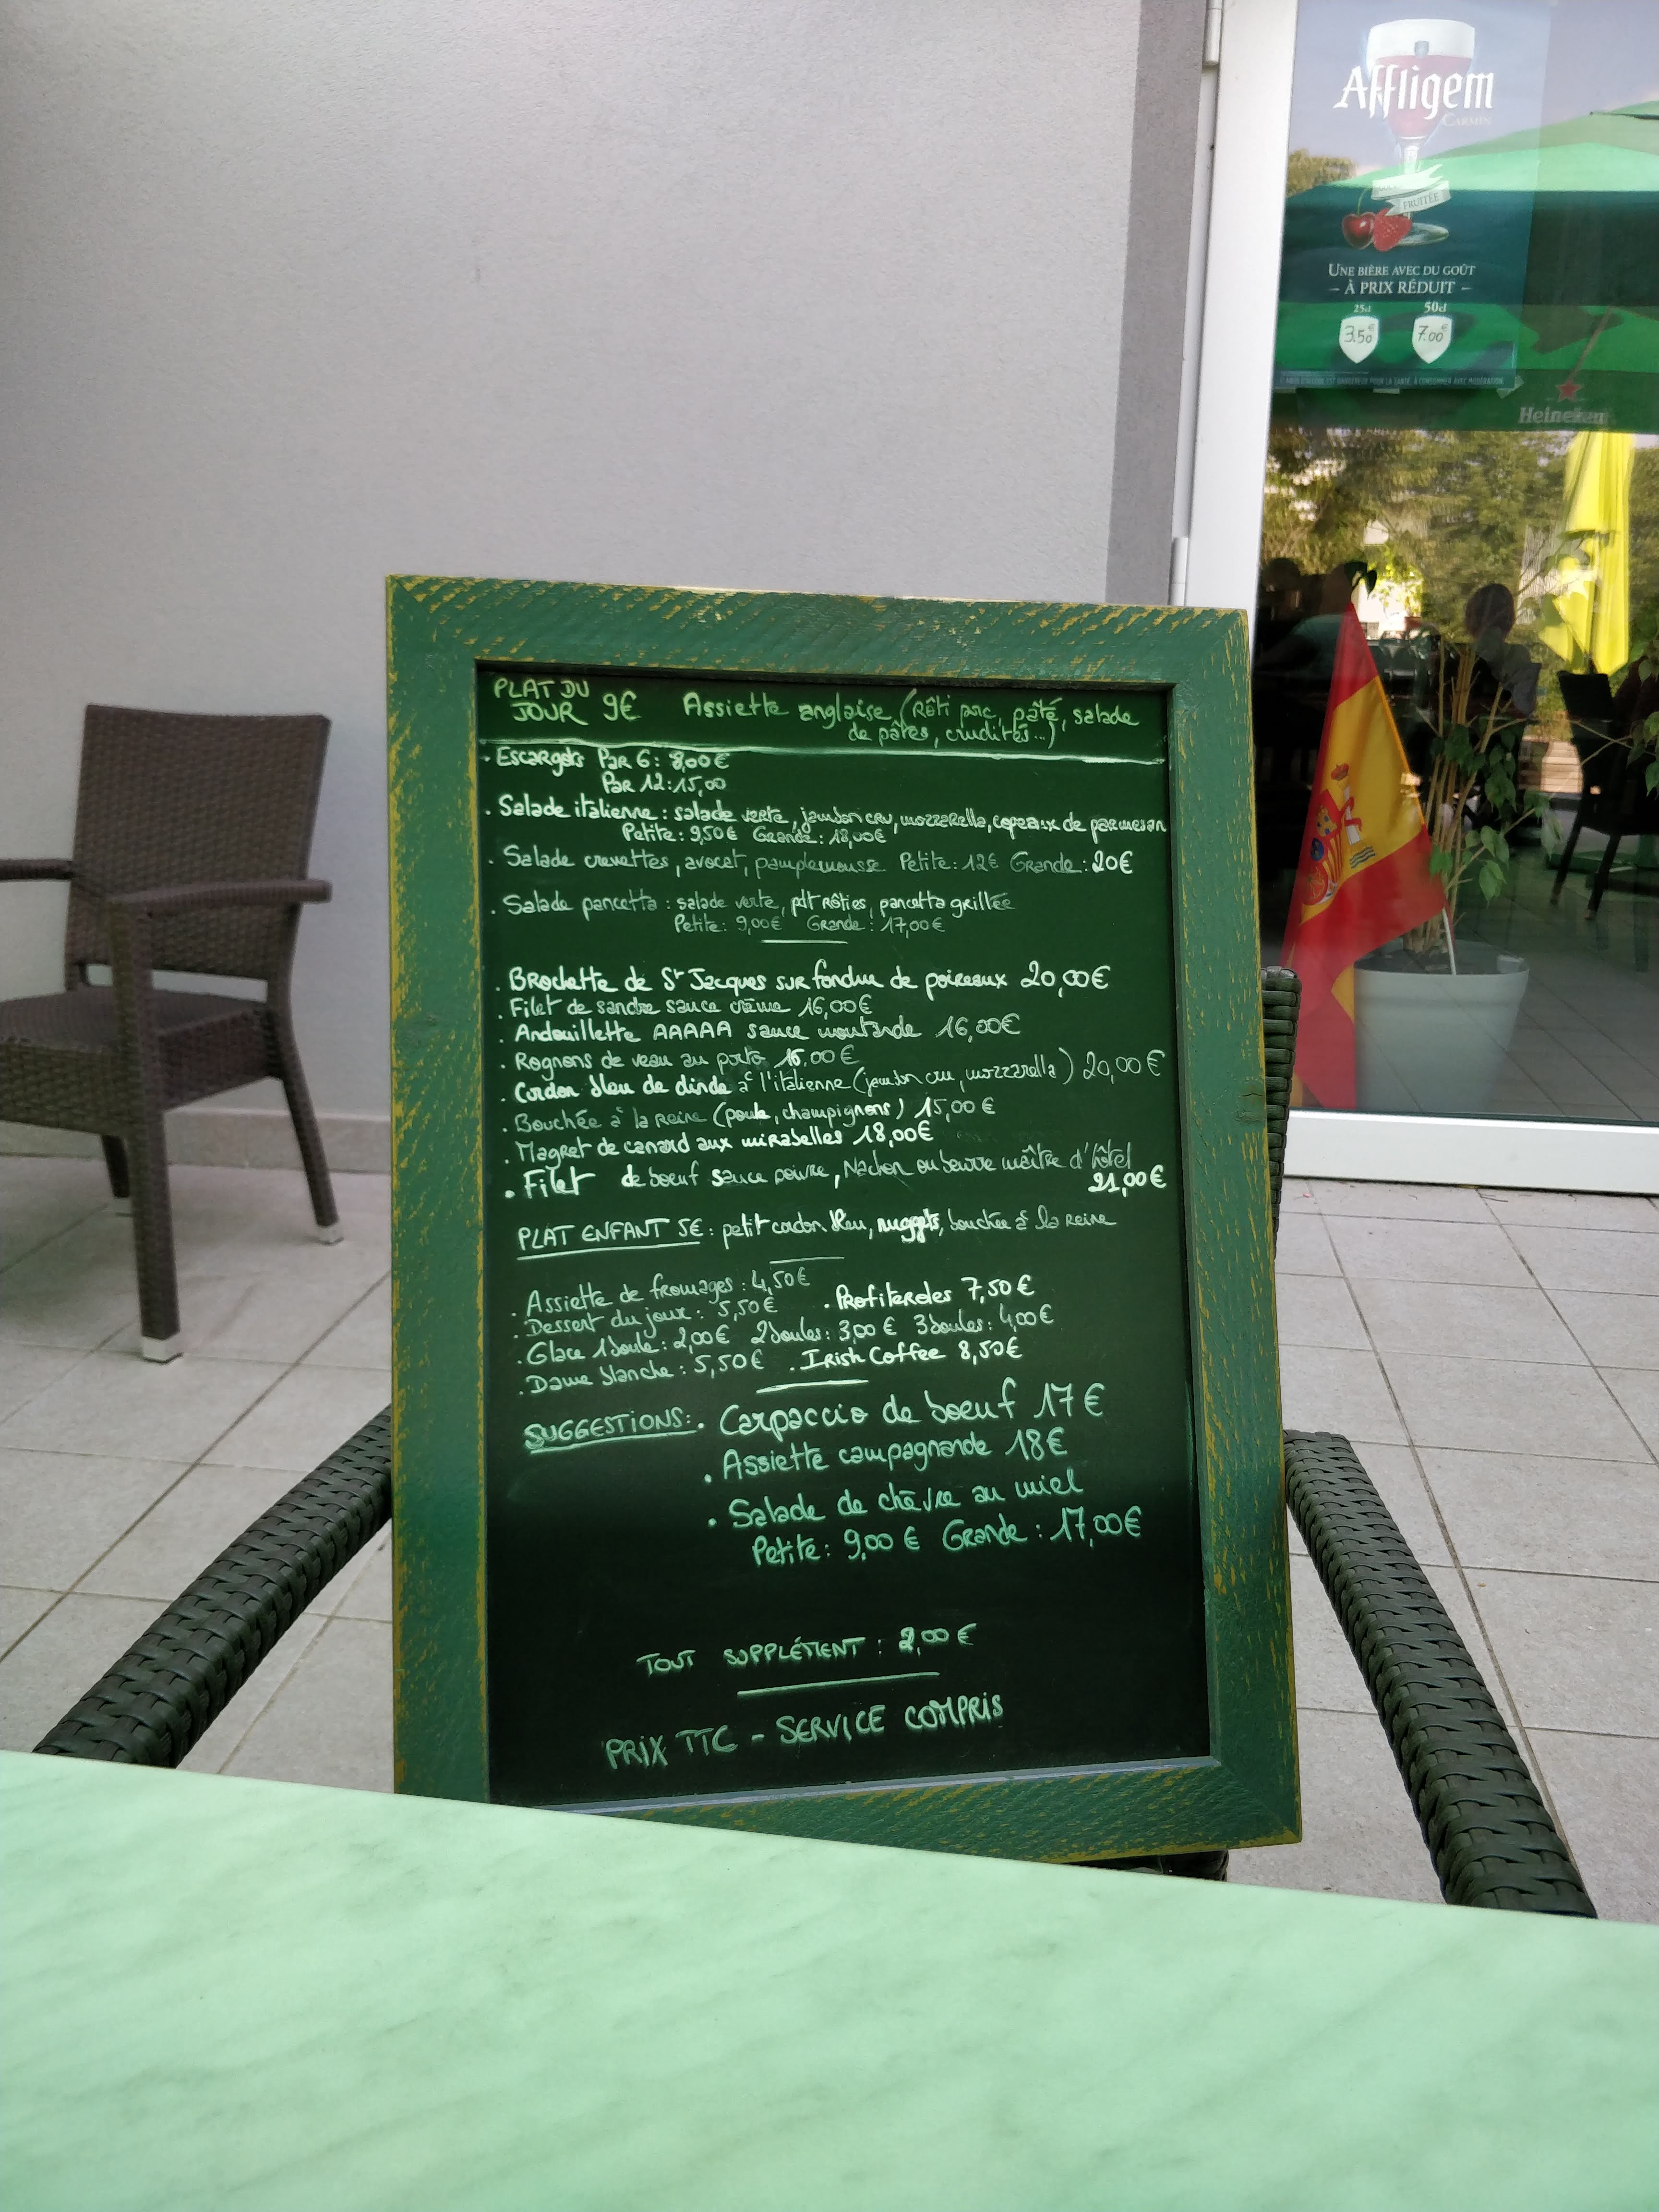 Affligem
CARMIN
FRUITÉE
UNE BIÈRE AVEC DU GOÛT
- À PRIX RÉDUIT -
25cl 50cl
3.50€ 7.00€
L'ABUS D'ALCOOL EST DANGEREUX POUR LA SANTÉ, À CONSOMMER AVEC MODÉRATION.
Heineken
PLAT DU
JOUR 9€ Assiette anglaise (Rôti porc, pâté, salade
de pâtes, crudités...)
• Escargots Par 6 : 8,00€
Par 12 : 15,00
• Salade italienne : salade verte, jambon cru, mozzarella, copeaux de parmesan
Petite : 9,50€ Grande : 18,00€
• Salade crevettes, avocat, pamplemousse Petite : 12€ Grande : 20€
• Salade pancetta : salade verte, pdt rôties, pancetta grillée
Petite : 9,00€ Grande : 17,00€
• Brochette de St Jacques sur fondue de poireaux 20,00€
• Filet de sandre sauce crème 16,00€
• Andouillette AAAAA sauce moutarde 16,00€
• Rognons de veau au porto 16,00€
• Cordon bleu de dinde à l'italienne (jambon cru, mozzarella) 20,00€
• Bouchée à la reine (poule, champignons) 15,00€
• Magret de canard aux mirabelles 18,00€
• Filet de boeuf sauce poivre, Nachon ou beurre maître d'hôtel
21,00€
PLAT ENFANT 5€ : petit cordon bleu, nuggets, bouchée à la reine
• Assiette de fromages : 4,50€
• Dessert du jour : 5,50€ • Profiteroles 7,50€
• Glace 1 boule : 2,00€ 2 boules : 3,00€ 3 boules : 4,00€
• Dame blanche : 5,50€ • Irish Coffee 8,50€
SUGGESTIONS : • Carpaccio de boeuf 17€
• Assiette campagnarde 18€
• Salade de chèvre au miel
Petite : 9,00€ Grande : 17,00€
TOUT SUPPLÉMENT : 2,00€
PRIX TTC - SERVICE COMPRIS